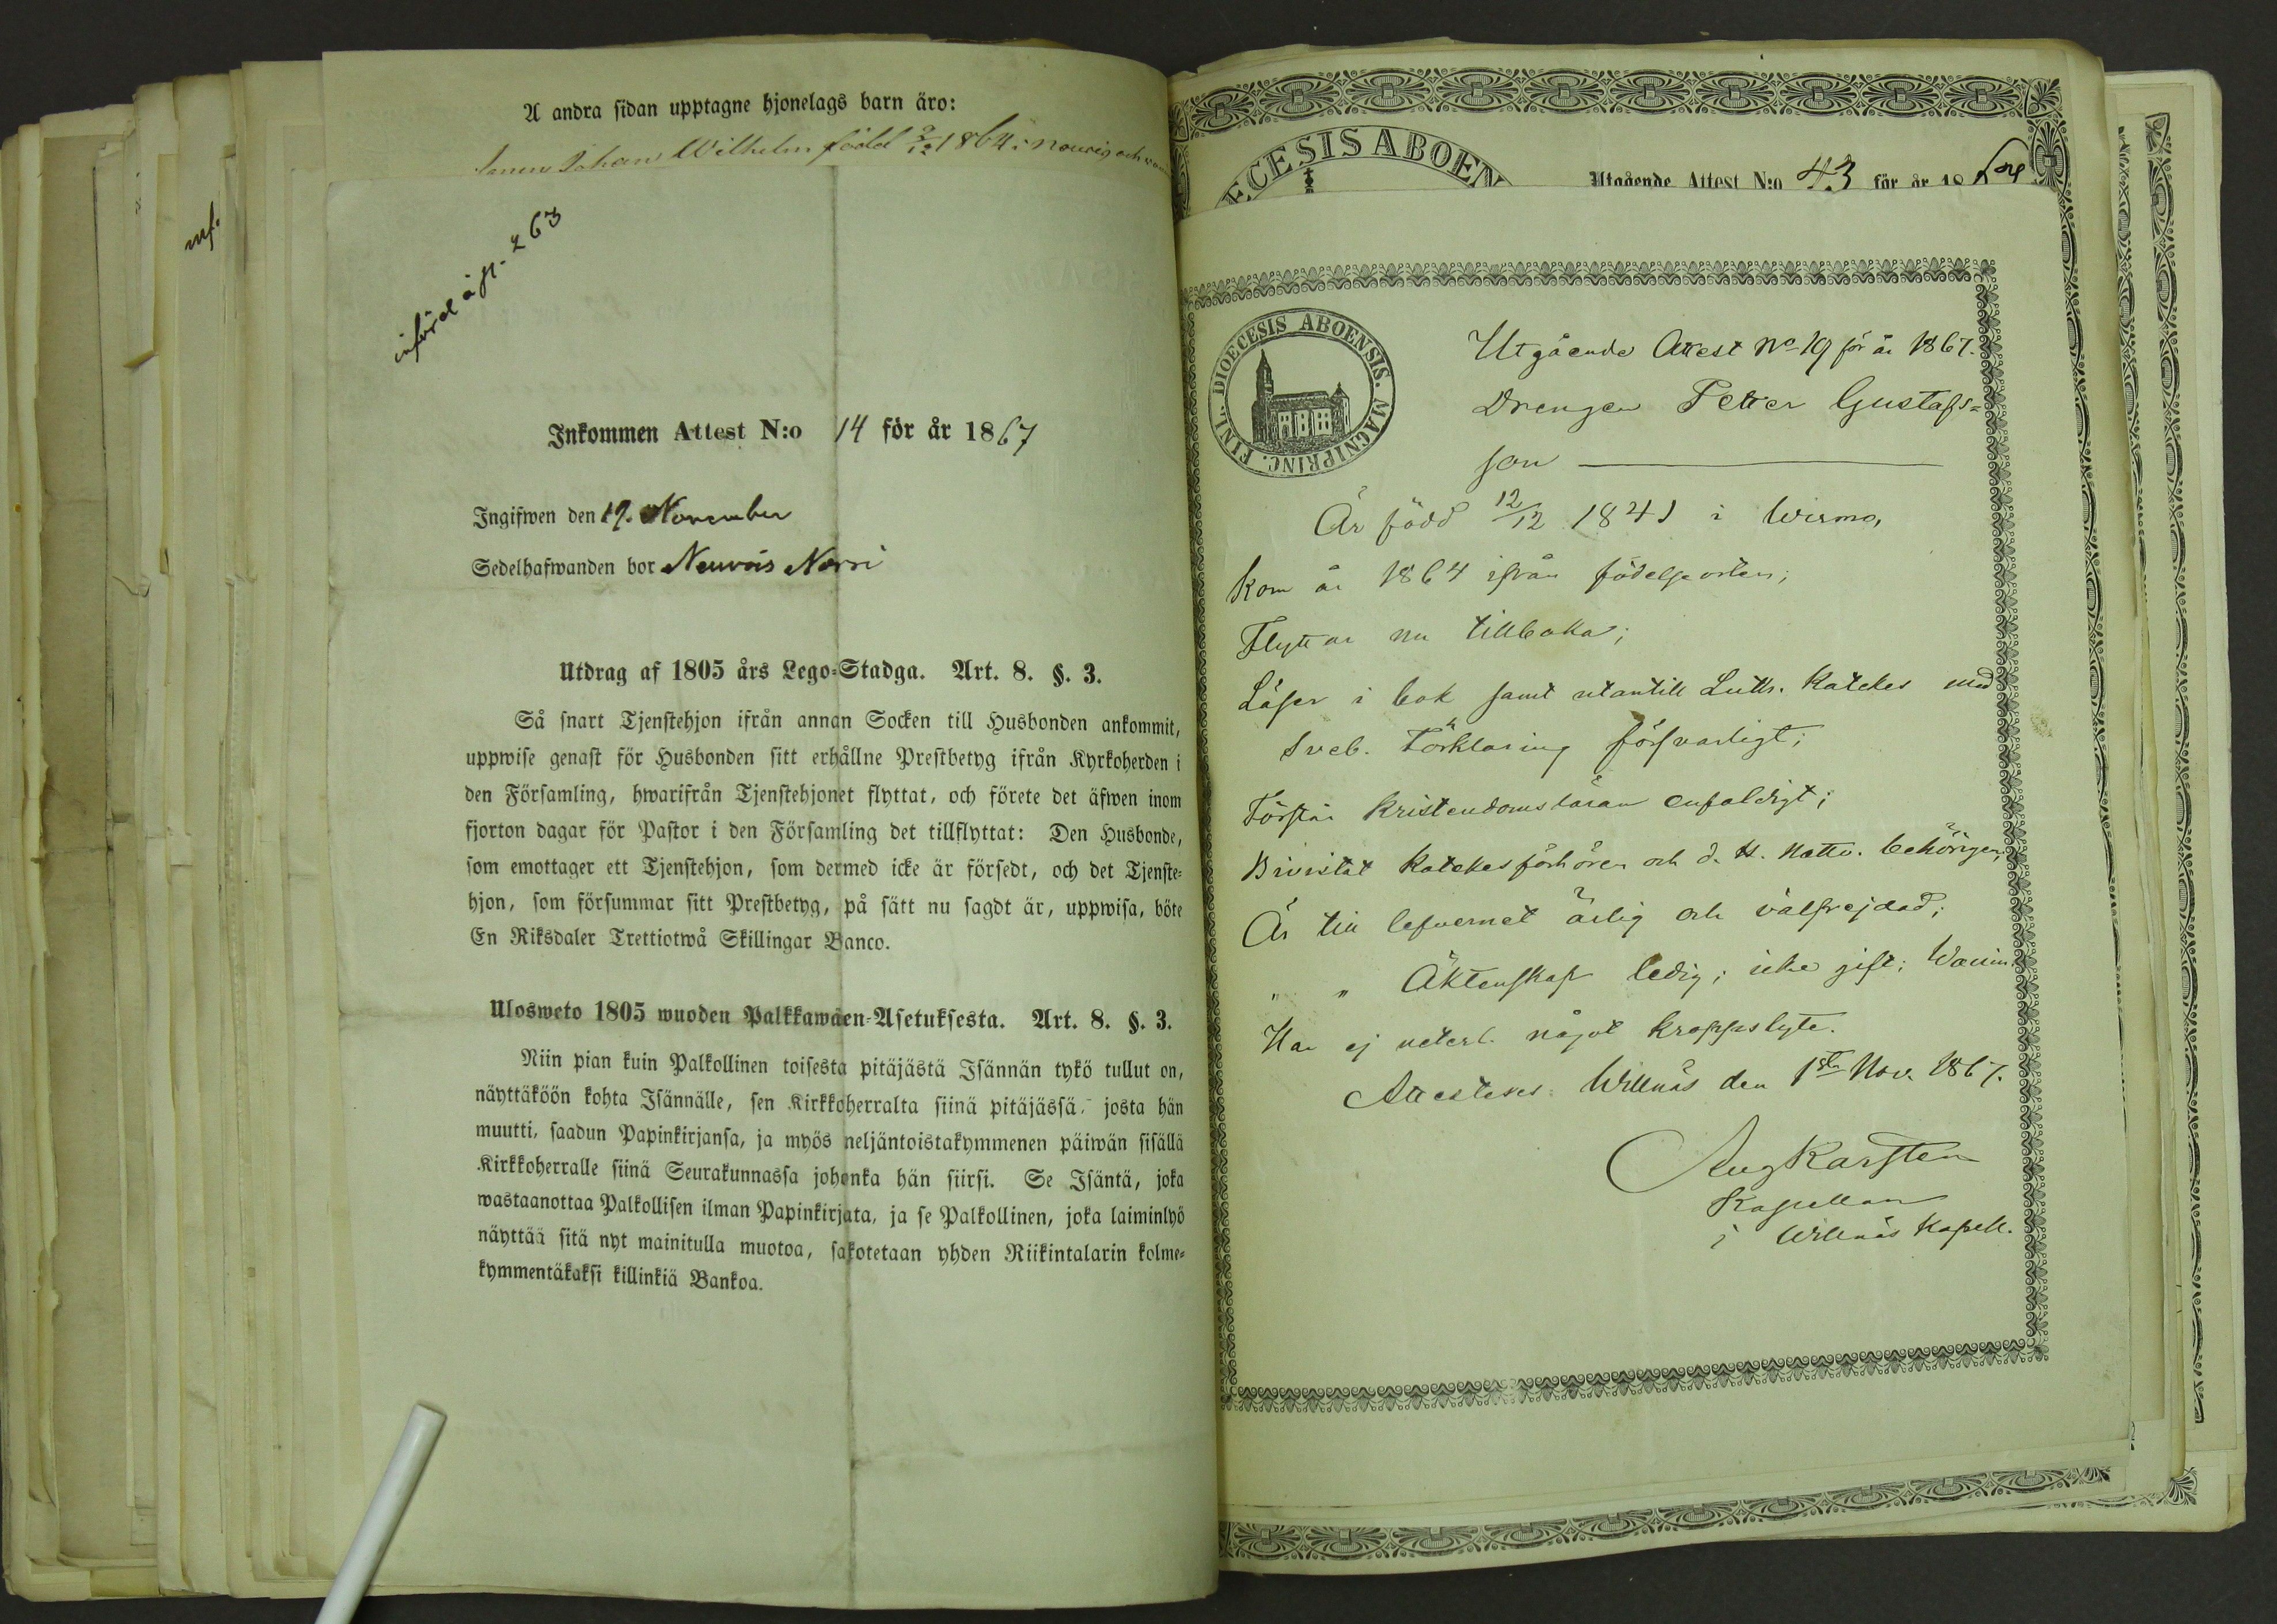 A andra sidan upptagne hjonelags barn äro:
Johan Wilhelm född 2/12 1864; och
införd å p. 263
Inkommen Attest N:o 14 för år 1867
Ingifwen den 19. November
Sedelhafwanden bor Nourvis Norri
Utdrag af 1805 års Lego-Stadga. Art. 8. §. 3.
Så snart Tjenstehjon ifrån annan Socken till Husbonden ankommit,
uppwise genast för Husbonden sitt erhållne Prestbetyg ifrån Kyrkoherden i
den Församling, hwarifrån Tjenstehjonet flyttat, och förete det äfwen inom
fjorton dagar för Pastor i den Församling det tillflyttat: Den Husbonde,
som emottager ett Tjenstehjon, som dermed icke är försedt, och det Tjenste-
hjon, som försummar sitt Prestbetyg, på sätt nu sagdt är, uppwisa, böte
En Riksdaler Trettiotwå Skillingar Banco.
Ulosweto 1805 wuoden Palkkawäen-Asetuksesta. Art. 8. §. 3.
Niin pian kuin Palkollinen toisesta pitäjästä Isännän tykö tullut on,
näyttäköön kohta Isännälle, sen Kirkkoherralta siinä pitäjässä, josta hän
muutti, saadun Papinkirjansa, ja myös neljäntoistakymmenen päiwän sisällä
Kirkkoherralle siinä Seurakunnassa johonka hän siirsi. Se Isäntä, joka
wastaanottaa Palkollisen ilman Papinkirjata, ja se Palkollinen, joka laiminlyö
näyttää sitä nyt mainitulla muotoa, sakotetaan yhden Riikintalarin kolme-
kymmentäkaksi killinkiä Bankoa.
mf.
ECESIS ABOEN
Utgående Attest N:o 43 för år 18
DIOECESIS ABOENSIS. MAGNIPRINC. FINL.
Utgående Attest No 19 för år 1867.
Drengen Petter Gustafs-
son
Är född 12/12 1841 i Wirmo,
Kom år 1864 ifrån födelseorten;
Flyttar nu tillbaka;
Läser i bok samt utantill Luth. Katekes med
Sveb. Förklaring försvarligt;
Förstår Kristendomsläran enfaldigt;
Bivistat Katekesförhören och d. H. Nattv. behörigen;
Är till lefvernet ärlig och välfrejdad;
" " Äktenskap ledig; icke gift; Waccin.
Har ej veterl. något kroppslyte.
Attesteras. Willnäs den 1sta Nov. 1867.
Aug Karsten
Kapellan
i Willnäs Kapell.